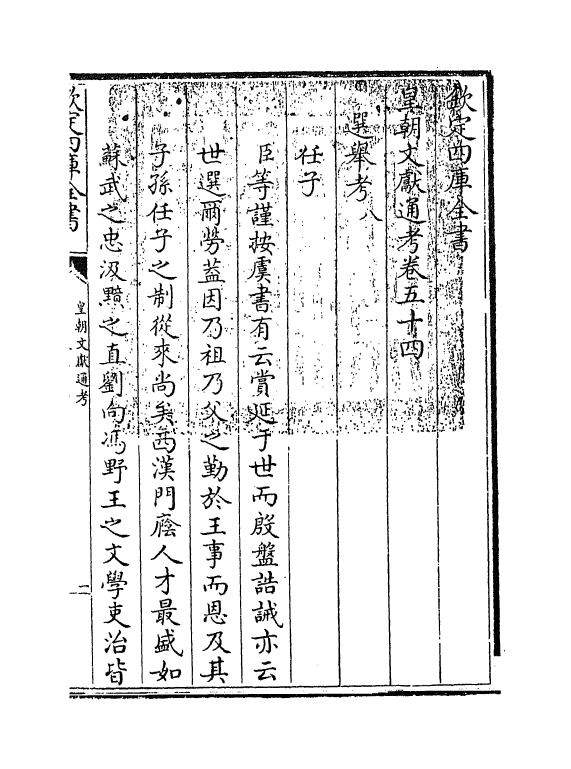 欽定四庫全書
皇朝文獻通考卷五十四
選舉考八
任子
臣等謹按虞書有云賞延于世而殷盤誥誡亦云
世選爾勞蓋因乃祖乃父之勤於王事而恩及其
子孫任子之制從來尚矣西漢門廕人才最盛如
蘇武之忠汲黯之直劉向馮野王之文學吏治皆
欽定四庫全書
皇朝文獻通考